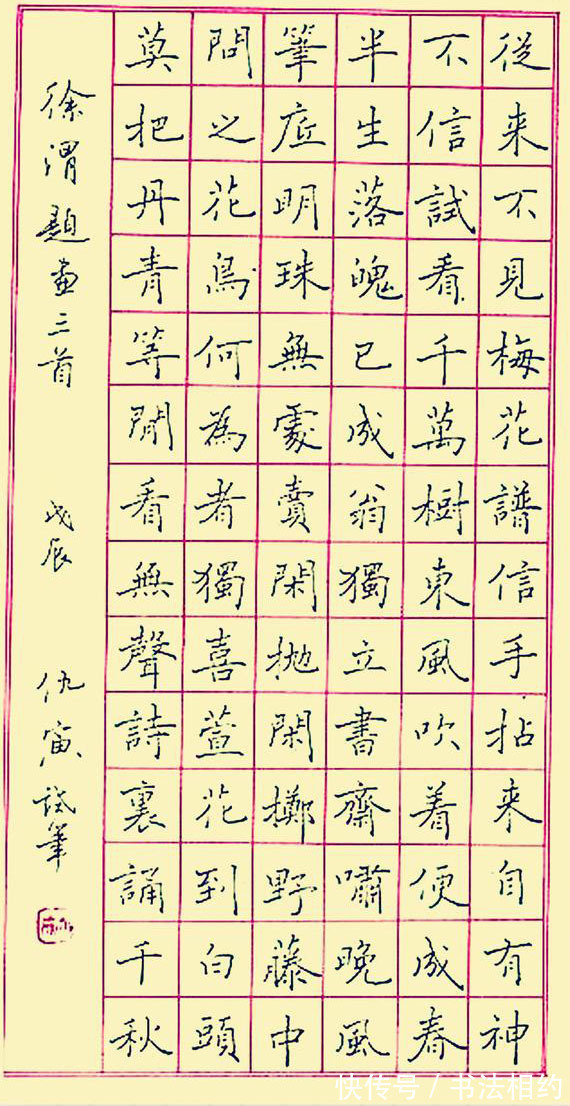 從来不見梅花譜信手拈来自有神
不信試看千萬樹東風吹着便成春
半生落魄已成翁獨立書齋嘯晚風
筆底明珠無處賣閑抛閑擲野藤中
問之花鳥何為者獨喜萱花到白頭
莫把丹青等閒看無聲詩裏誦千秋
徐渭題畫三首 戊辰 仇寅試筆
快传号/书法相约